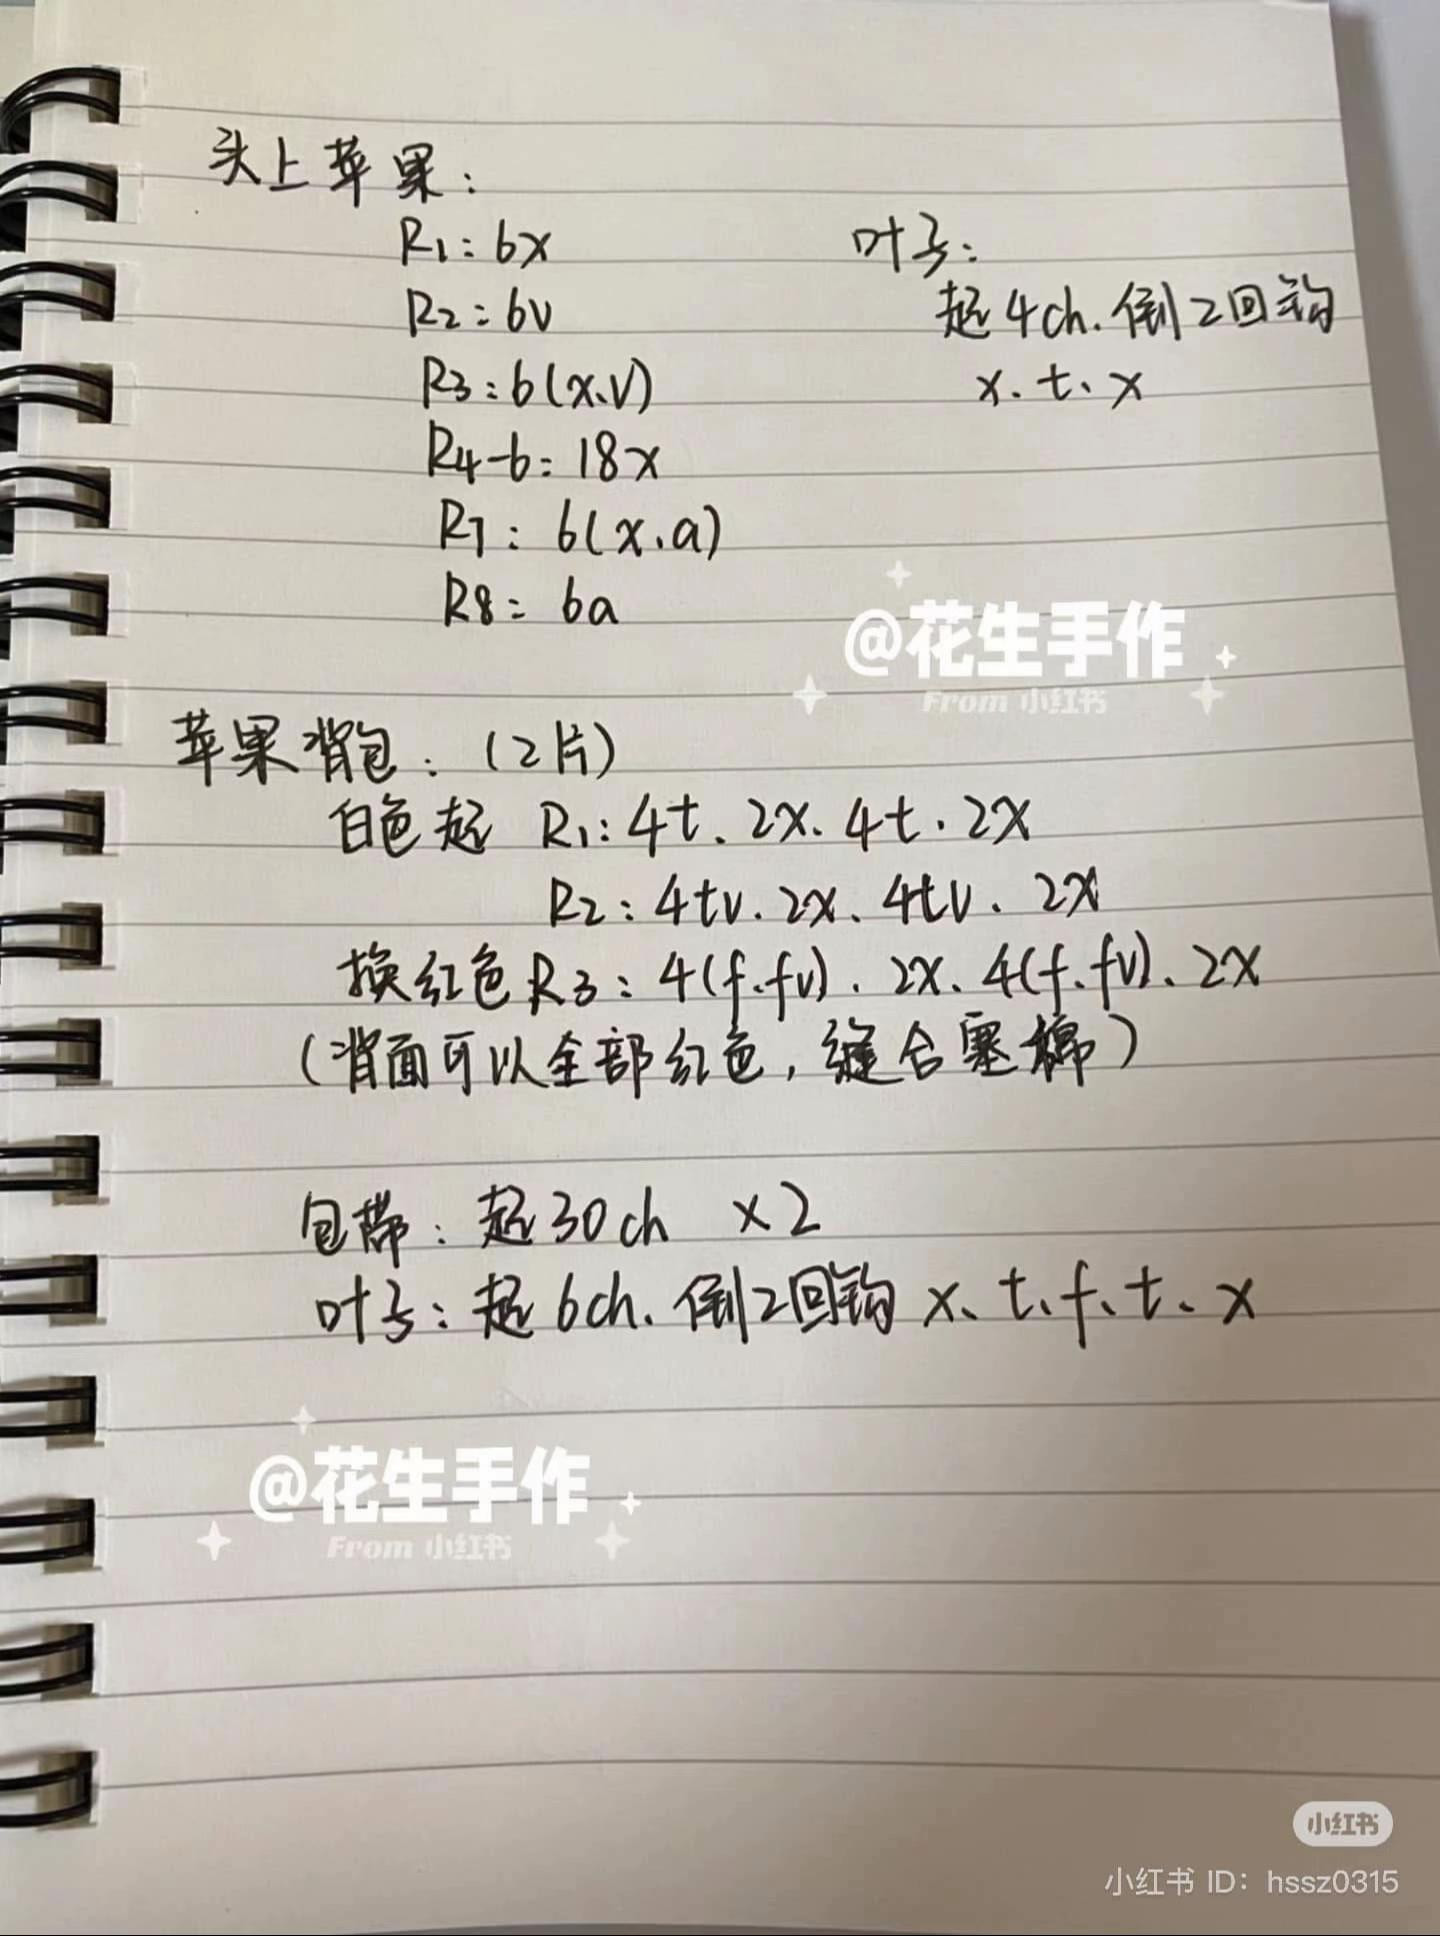 头上苹果：
R1：6x
R2：6v
R3：6(x、v)
R4-6：18x
R7：6(x、a)
R8：6a
叶子：
起4ch．倒2回钩
x、t、x
@花生手作
From 小红书
苹果背包：(2片)
白色起 R1：4t、2x、4t、2x
R2：4tv、2x、4tv、2x
换红色R3：4(f、fv)、2x、4(f、fv)、2x
(背面可以全部红色，缝合塞棉)
包带：起30ch ×2
叶子：起6ch．倒2回钩 x、t、f、t、x
@花生手作
From 小红书
小红书
小红书 ID：hssz0315